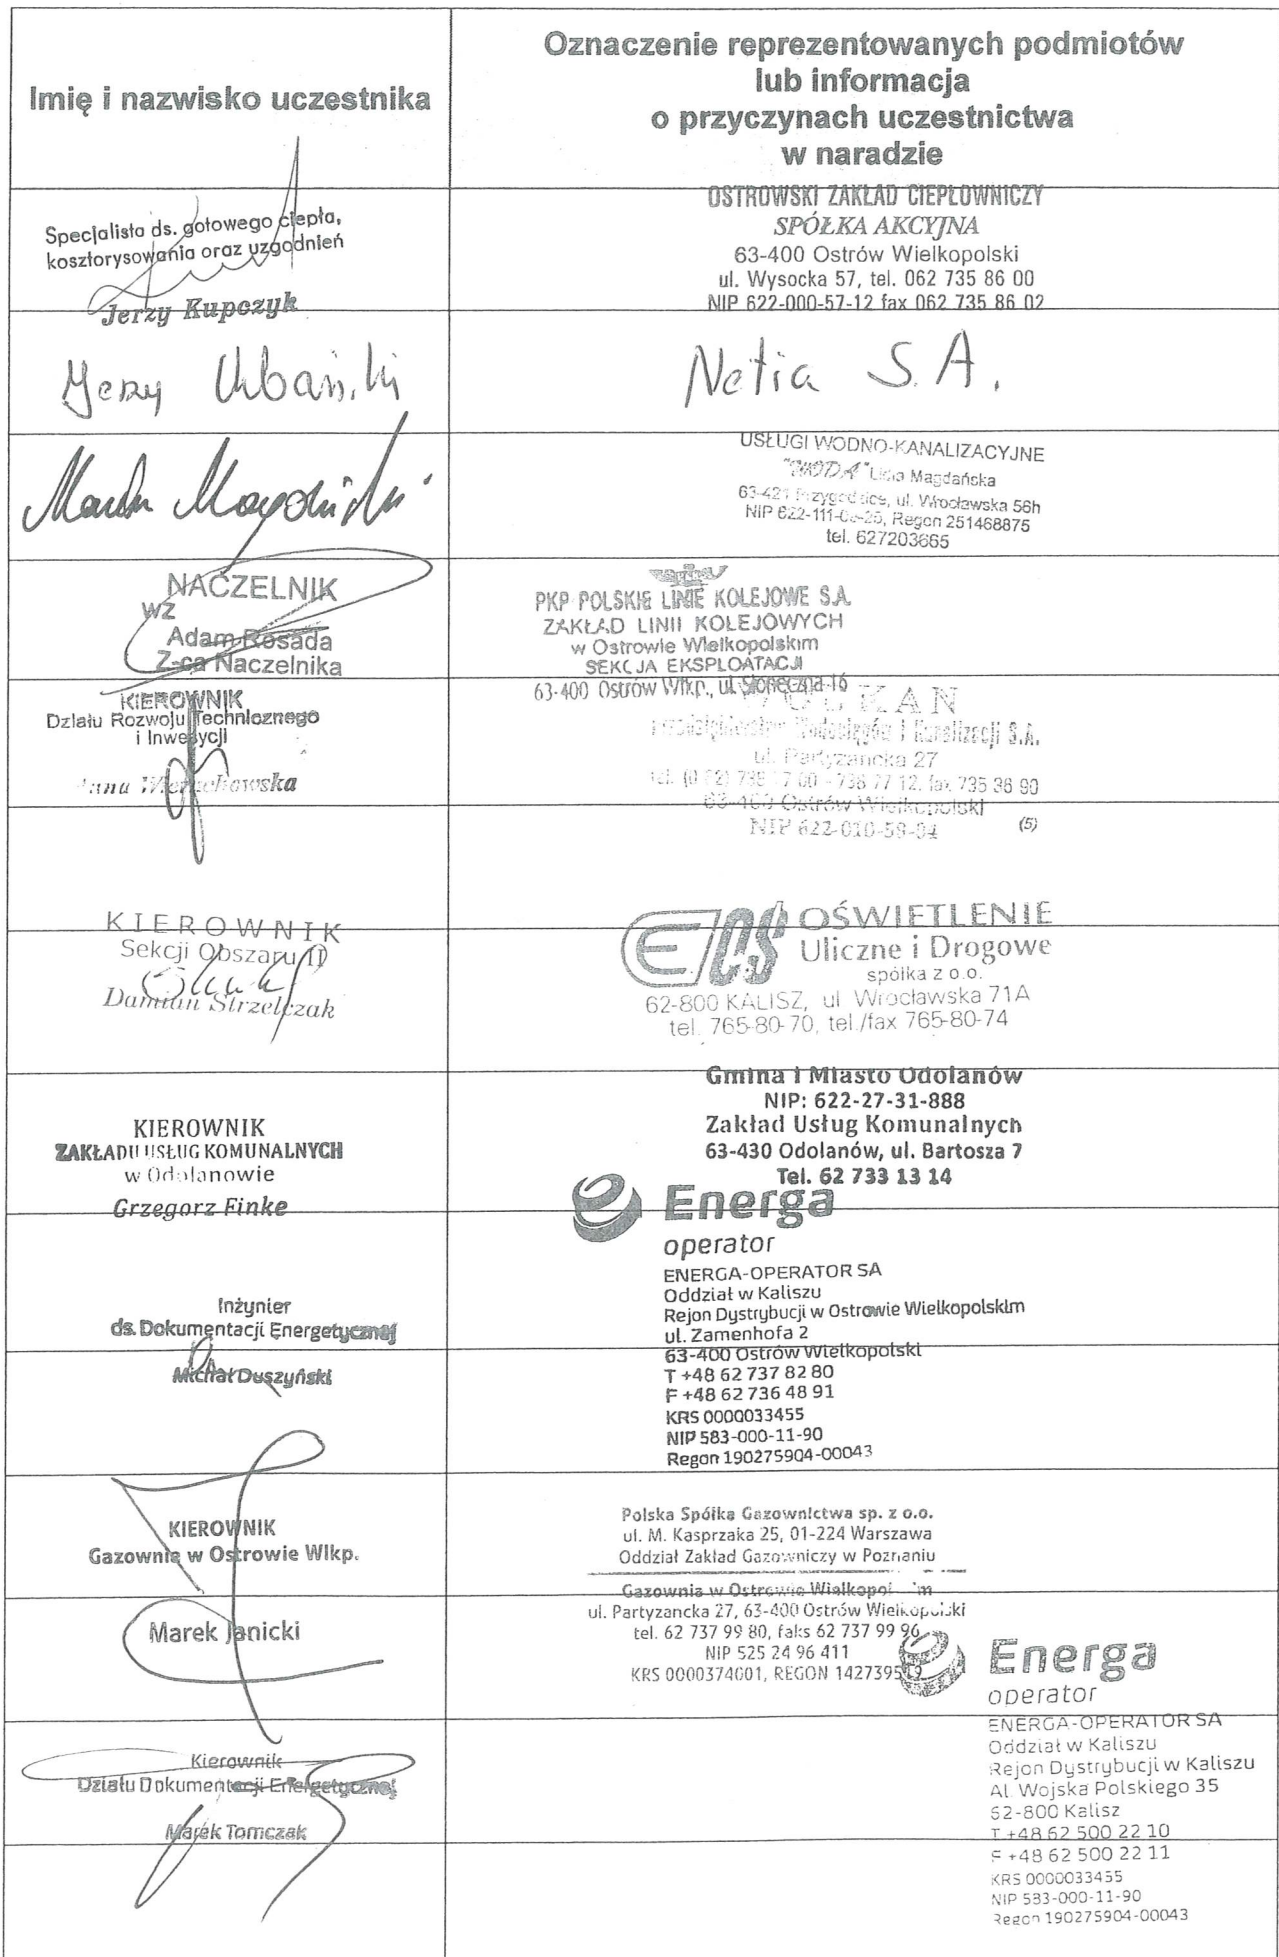 Imię i nazwisko uczestnika
Oznaczenie reprezentowanych podmiotów
lub informacja
o przyczynach uczestnictwa
w naradzie
Specjalista ds. gotowego ciepła,
kosztorysowania oraz uzgodnień
Jerzy Kupczyk
OSTROWSKI ZAKŁAD CIEPŁOWNICZY
SPÓŁKA AKCYJNA
63-400 Ostrów Wielkopolski
ul. Wysocka 57, tel. 062 735 86 00
NIP 622-000-57-12 fax 062 735 86 02
Jerzy
Netia S.A.
USŁUGI WODNO-KANALIZACYJNE
"WODA" Magdańska
63-421 Przygodzice, ul. Wrocławska 56h
NIP Regon 251468875
tel. 627203665
NACZELNIK
wz
Adam Rosada
Z-ca Naczelnika
PKP POLSKIE LINIE KOLEJOWE S.A.
ZAKŁAD LINII KOLEJOWYCH
w Ostrowie Wielkopolskim
SEKCJA EKSPLOATACJI
63-400 Ostrów Wlkp., ul. Słoneczna 16
KIEROWNIK
Działu Rozwoju Technicznego
i Inwestycji
Wodociągów i Kanalizacji S.A.
ul. Partyzancka 27
63-400 Ostrów Wielkopolski
(5)
KIEROWNIK
Sekcji Obszaru
Damian Strzelczak
EOS OŚWIETLENIE
Uliczne i Drogowe
spółka z o.o.
62-800 KALISZ, ul Wrocławska 71A
tel. 765-80-70, tel./fax 765-80-74
KIEROWNIK
ZAKŁADU USŁUG KOMUNALNYCH
w Odolanowie
Grzegorz Finke
Gmina i Miasto Odolanów
NIP: 622-27-31-888
Zakład Usług Komunalnych
63-430 Odolanów, ul. Bartosza 7
Tel. 62 733 13 14
Inżynier
ds. Dokumentacji Energetycznej
Michał Duszyński
Energa
operator
ENERGA-OPERATOR SA
Oddział w Kaliszu
Rejon Dystrybucji w Ostrowie Wielkopolskim
ul. Zamenhofa 2
63-400 Ostrów Wielkopolski
T +48 62 737 82 80
F +48 62 736 48 91
KRS 0000033455
NIP 583-000-11-90
Regon 190275904-00043
KIEROWNIK
Gazownia w Ostrowie Wlkp.
Marek Janicki
Polska Spółka Gazownictwa sp. z o.o.
ul. M. Kasprzaka 25, 01-224 Warszawa
Oddział Zakład Gazowniczy w Poznaniu
Gazownia w Ostrowie
ul. Partyzancka 27, 63-400 Ostrów Wielkopolski
tel. 62 737 99 80, faks 62 737 99 96
NIP 525 24 96 411
KRS 0000374001, REGON
Kierownik
Działu Dokumentacji Energetycznej
Marek Tomczak
Energa
operator
ENERGA-OPERATOR SA
Oddział w Kaliszu
Rejon Dystrybucji w Kaliszu
Al. Wojska Polskiego 35
62-800 Kalisz
T +48 62 500 22 10
F +48 62 500 22 11
KRS 0000033455
NIP 583-000-11-90
Regon 190275904-00043